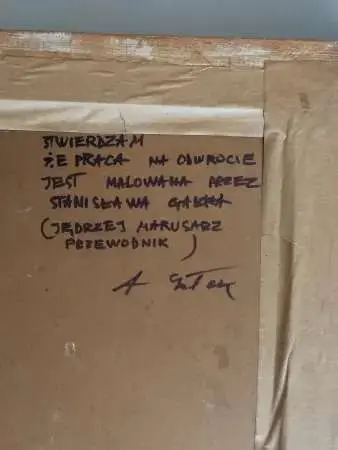 STWIERDZAM
ŻE PRACA NA ODWROCIE
JEST MALOWANA PRZEZ
STANISŁAWA GAŁKA
(JĘDRZEJ MARUSARZ
PRZEWODNIK)